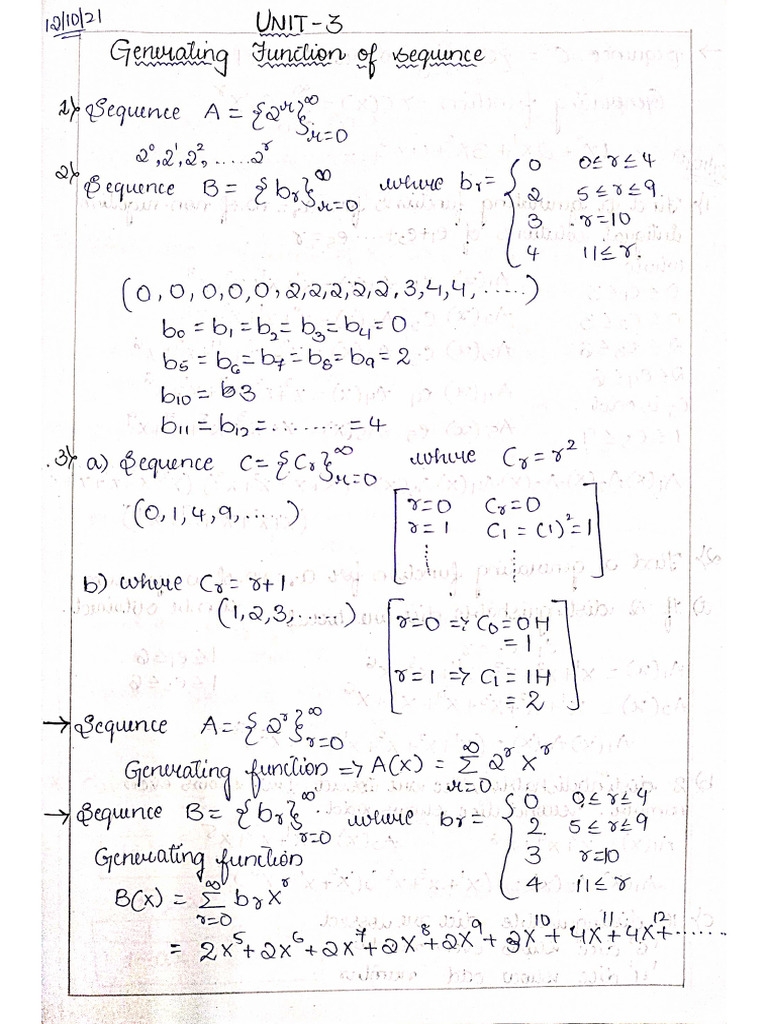 12/10/21
UNIT-3
Generating Function of sequence
1) Sequence A = {2^r}_{r=0}^∞
2^0, 2^1, 2^2, .....2^r
2) Sequence B = {b_r}_{r=0}^∞ where b_r = { 0 0≤r≤4
2 5≤r≤9
3 r=10
4 11≤r.
(0,0,0,0,0,2,2,2,2,2,3,4,4,.....)
b_0 = b_1 = b_2 = b_3 = b_4 = 0
b_5 = b_6 = b_7 = b_8 = b_9 = 2
b_10 = 3
b_11 = b_12 = ........ = 4
3) a) Sequence C = {C_r}_{r=0}^∞ where C_r = r^2
(0,1,4,9,.....)
[ r=0 C_r=0
r=1 C_1 = (1)^2 = 1 ]
b) where C_r = r+1
(1,2,3,.....)
[ r=0 => C_0 = 0H
= 1
r=1 => C_1 = 1H
= 2 ]
→ Sequence A = {2^r}_{r=0}^∞
Generating function => A(x) = Σ_{r=0}^∞ 2^r x^r
→ Sequence B = {b_r}_{r=0}^∞ where b_r = { 0 0≤r≤4
2 5≤r≤9
3 r=10
4 11≤r
Generating function
B(x) = Σ_{r=0}^∞ b_r x^r
= 2x^5 + 2x^6 + 2x^7 + 2x^8 + 2x^9 + 3x^10 + 4x^11 + 4x^12 + .......